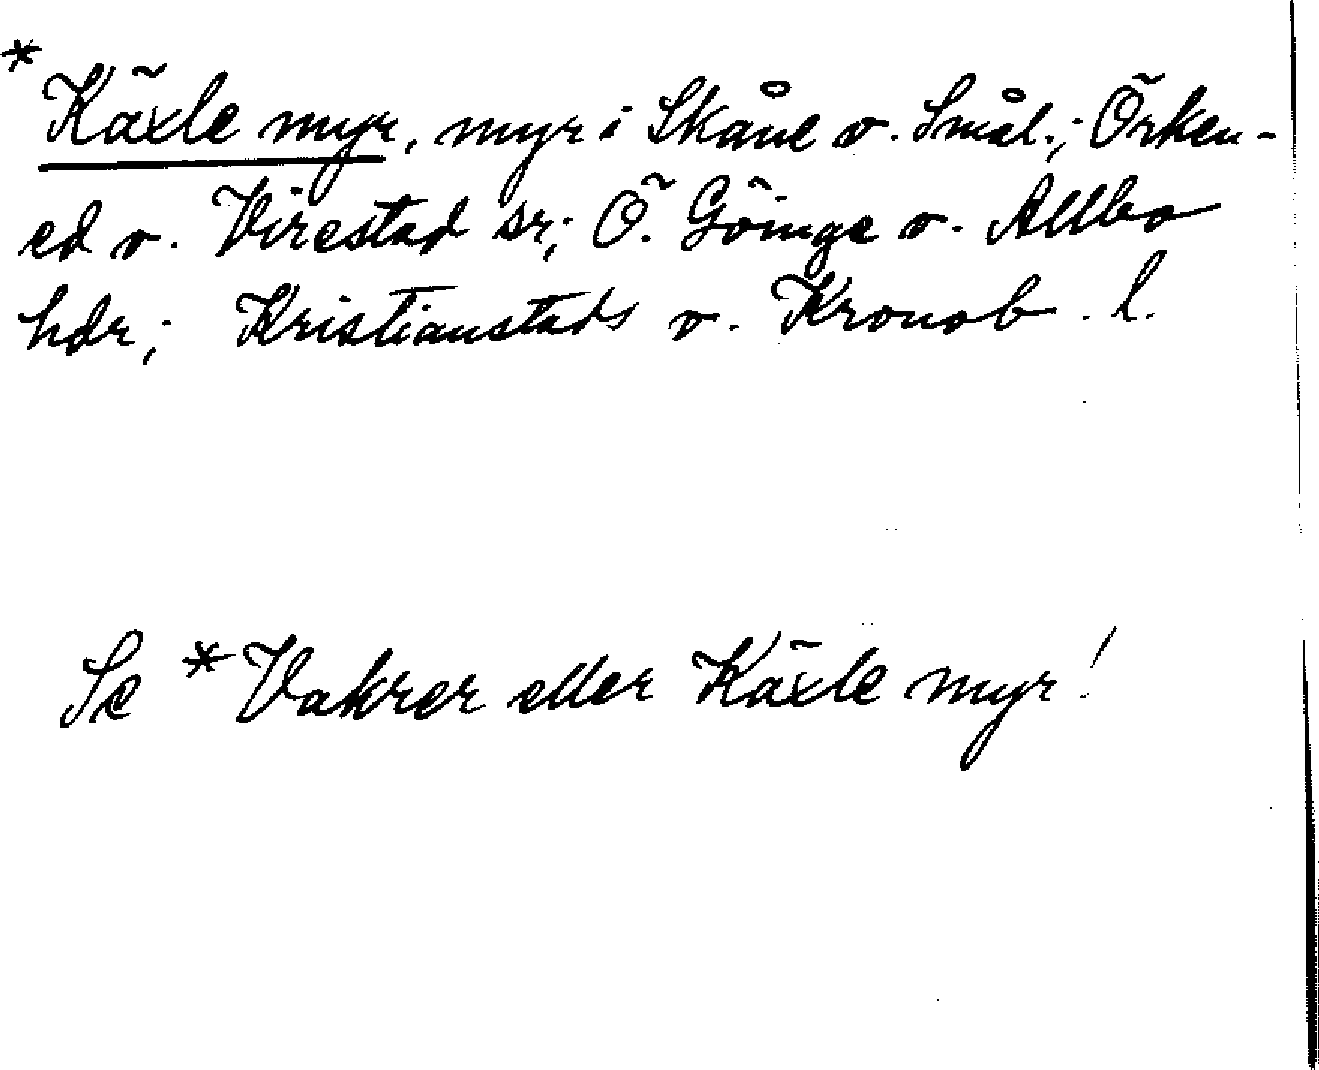 * Käxle myr, myr i Skåne o. Smål.; Örken-
ed o. Virestad sr; Ö. Göinge o. Allbo
hdr; Kristianstads o. Kronob. l.
Se * Vakrer eller Käxle myr!